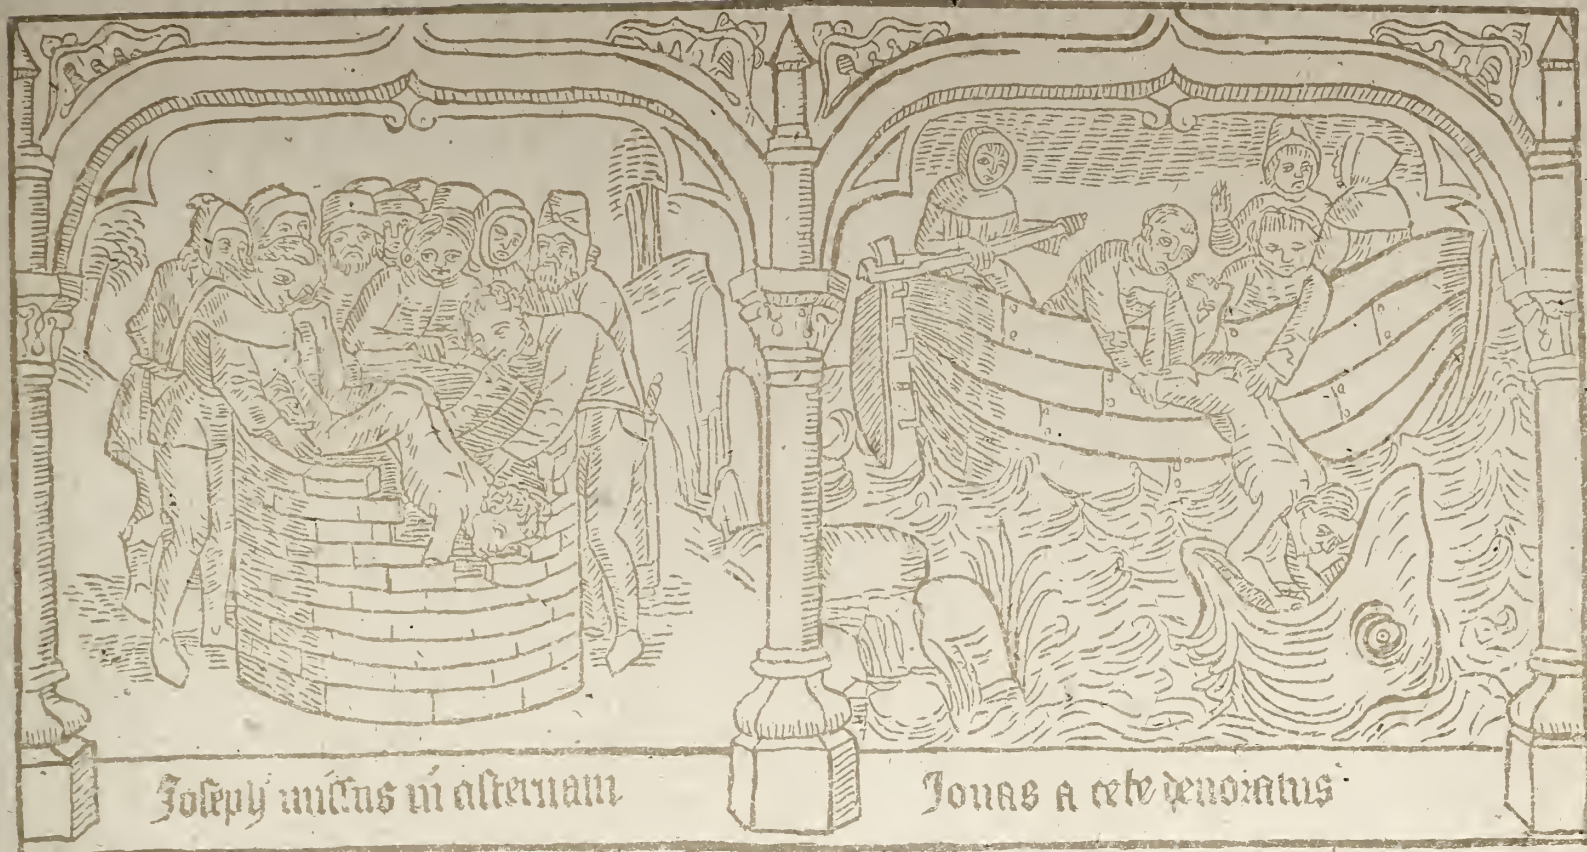 Joseph missus in cisternam
Jonas a cete devoratus